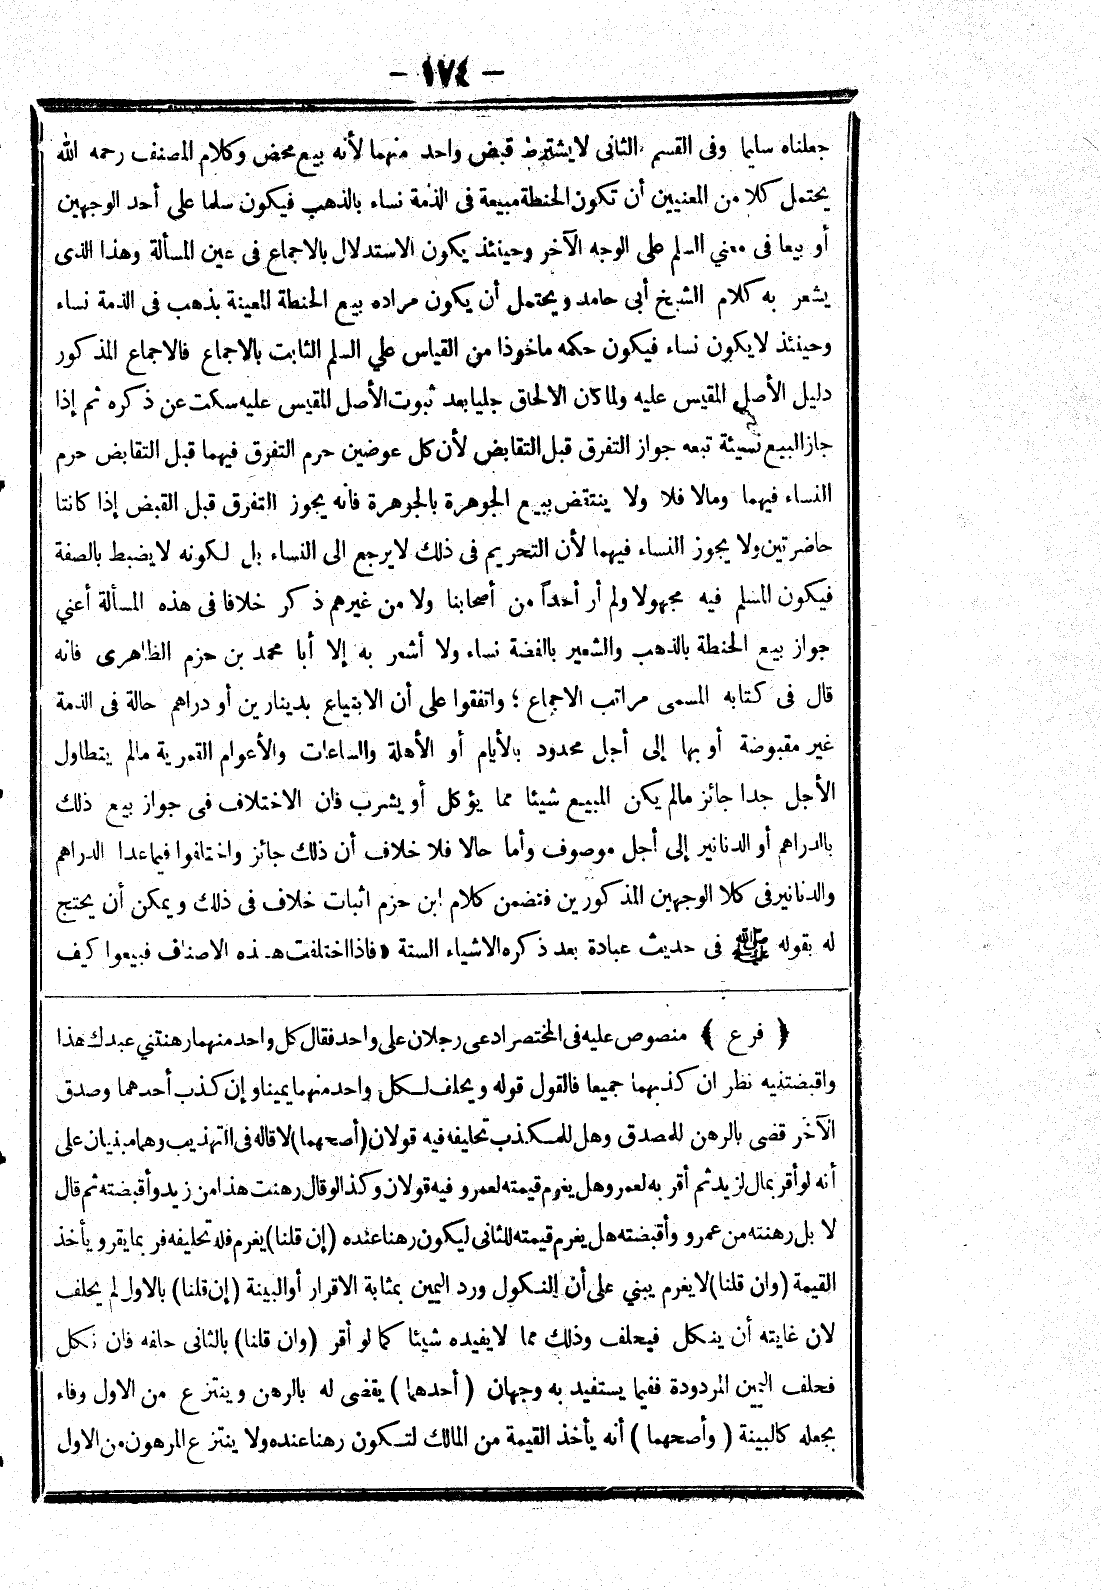 - ١٧٤ -
جعلناه سلما وفى القسم الثانى لا يشترط قبض واحد منهما لأنه بيع محض وكلام المصنف رحمه الله
يحتمل كلا من المعنيين أن تكون الحنطة مبيعة فى الذمة نساء بالذهب فيكون سلما على أحد الوجهين
أو بيعا فى معنى السلم على الوجه الآخر وحينئذ يكون الاستدلال بالاجماع فى عين المسألة وهذا الذى
يشعر به كلام الشيخ أبى حامد ويحتمل أن يكون مراده بيع الحنطة المعينة بذهب فى الذمة نساء
وحينئذ لايكون نساء فيكون حكمه ماخوذا من القياس على السلم الثابت بالاجماع فالاجماع المذكور
دليل الأصل المقيس عليه ولما كان الالحاق جليا بعد ثبوت الأصل المقيس عليه سكت عن ذكره ثم إذا
جاز البيع نسيئة تبعه جواز التفرق قبل التقابض لأن كل عوضين حرم التفرق فيهما قبل التقابض حرم
النساء فيهما ومالا فلا ولا ينتقض ببيع الجوهرة بالجوهرة فانه يجوز التفرق قبل القبض إذا كانتا
حاضرتين ولا يجوز النساء فيهما لأن التحريم فى ذلك لا يرجع الى النساء بل لكونه لا يضبط بالصفة
فيكون المسلم فيه مجهولا ولم أر أحداً من أصحابنا ولا من غيرهم ذكر خلافا فى هذه المسألة أعنى
جواز بيع الحنطة بالذهب والشعير بالفضة نساء ولا أشعر به إلا أبا محمد بن حزم الظاهرى فانه
قال فى كتابه المسمى مراتب الاجماع ؛ واتفقوا على أن الابتياع بدينارين أو دراهم حالة فى الذمة
غير مقبوضة أو بها إلى أجل محدود بالأيام أو الأهلة والساعات والأعوام القمرية مالم يتطاول
الأجل جدا جائز مالم يكن المبيع شيئا مما يؤكل أو يشرب فان الاختلاف فى جواز بيع ذلك
بالدراهم أو الدنانير إلى أجل موصوف وأما حالا فلا خلاف أن ذلك جائز واختلفوا فيما عدا الدراهم
والدنانير فى كلا الوجهين المذكورين فتضمن كلام ابن حزم اثبات خلاف فى ذلك ويمكن أن يحتج
له بقوله ﷺ فى حديث عبادة بعد ذكره الاشياء الستة «فاذا اختلفت هذه الاصناف فبيعوا كيف
﴿ فرع ﴾ منصوص عليه فى المختصر ادعى رجلان على واحد فقال كل واحد منهما رهنتنى عبدك هذا
واقبضتنيه نظر ان كذبهما جميعا فالقول قوله ويحلف لكل واحد منهما يمينا وإن كذب أحدهما وصدق
الآخر قضى بالرهن للمصدق وهل للمكذب تحليفه فيه قولان (أصحهما) لا قاله فى التهذيب وهما مبنيان على
أنه لو أقر بمال لزيد ثم أقر به لعمرو وهل يغرم قيمته لعمرو فيه قولان وكذا لو قال رهنت هذا من زيد وأقبضته ثم قال
لا بل رهنته من عمرو وأقبضته هل يغرم قيمته للثانى ليكون رهنا عنده (إن قلنا) يغرم فله تحليفه فربما يقر ويأخذ
القيمة (وان قلنا) لا يغرم يبنى على أن النكول ورد اليمين بمثابة الاقرار أو البينة (إن قلنا) بالاول لم يحلف
لان غايته أن ينكل فيحلف وذلك مما لا يفيده شيئا كما لو أقر (وان قلنا) بالثانى حلفه فان نكل
فحلف اليمين المردودة ففيما يستفيد به وجهان (أحدهما) يقضى له بالرهن وينتزع من الاول وفاء
بجعله كالبينة (وأصحهما) أنه يأخذ القيمة من المالك لتكون رهنا عنده ولا ينتزع المرهون من الاول